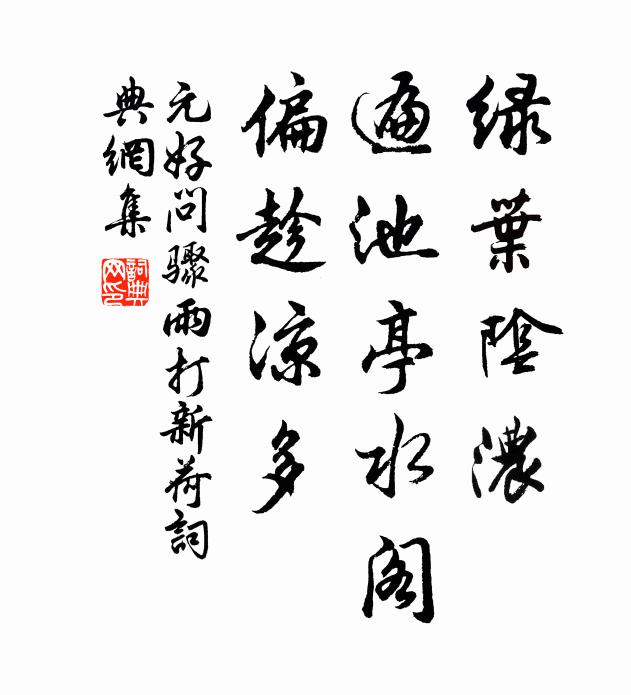 绿葉陰濃
遍池亭水閣
偏趁凉多
元好问驟雨打新荷詞
典網集
詞典
网印